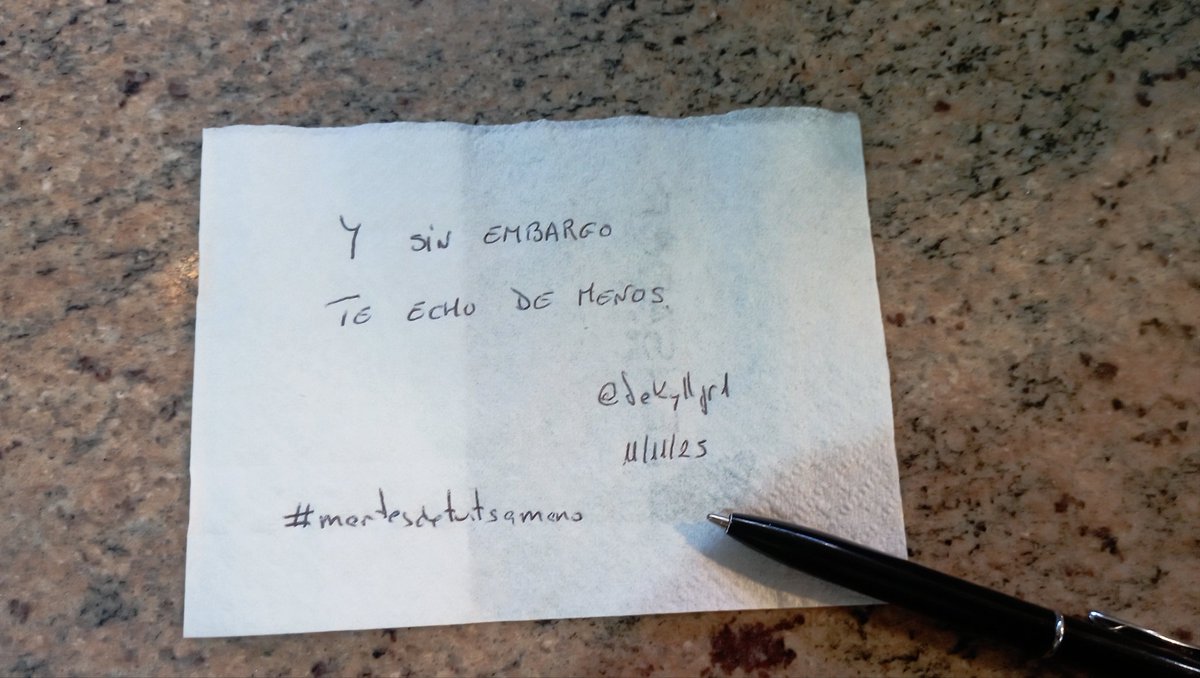 Y SiN EMBARGO
TE ECHO DE MENOS.
@Jekyllgrl
11/11/25
#martesdetuitsamano